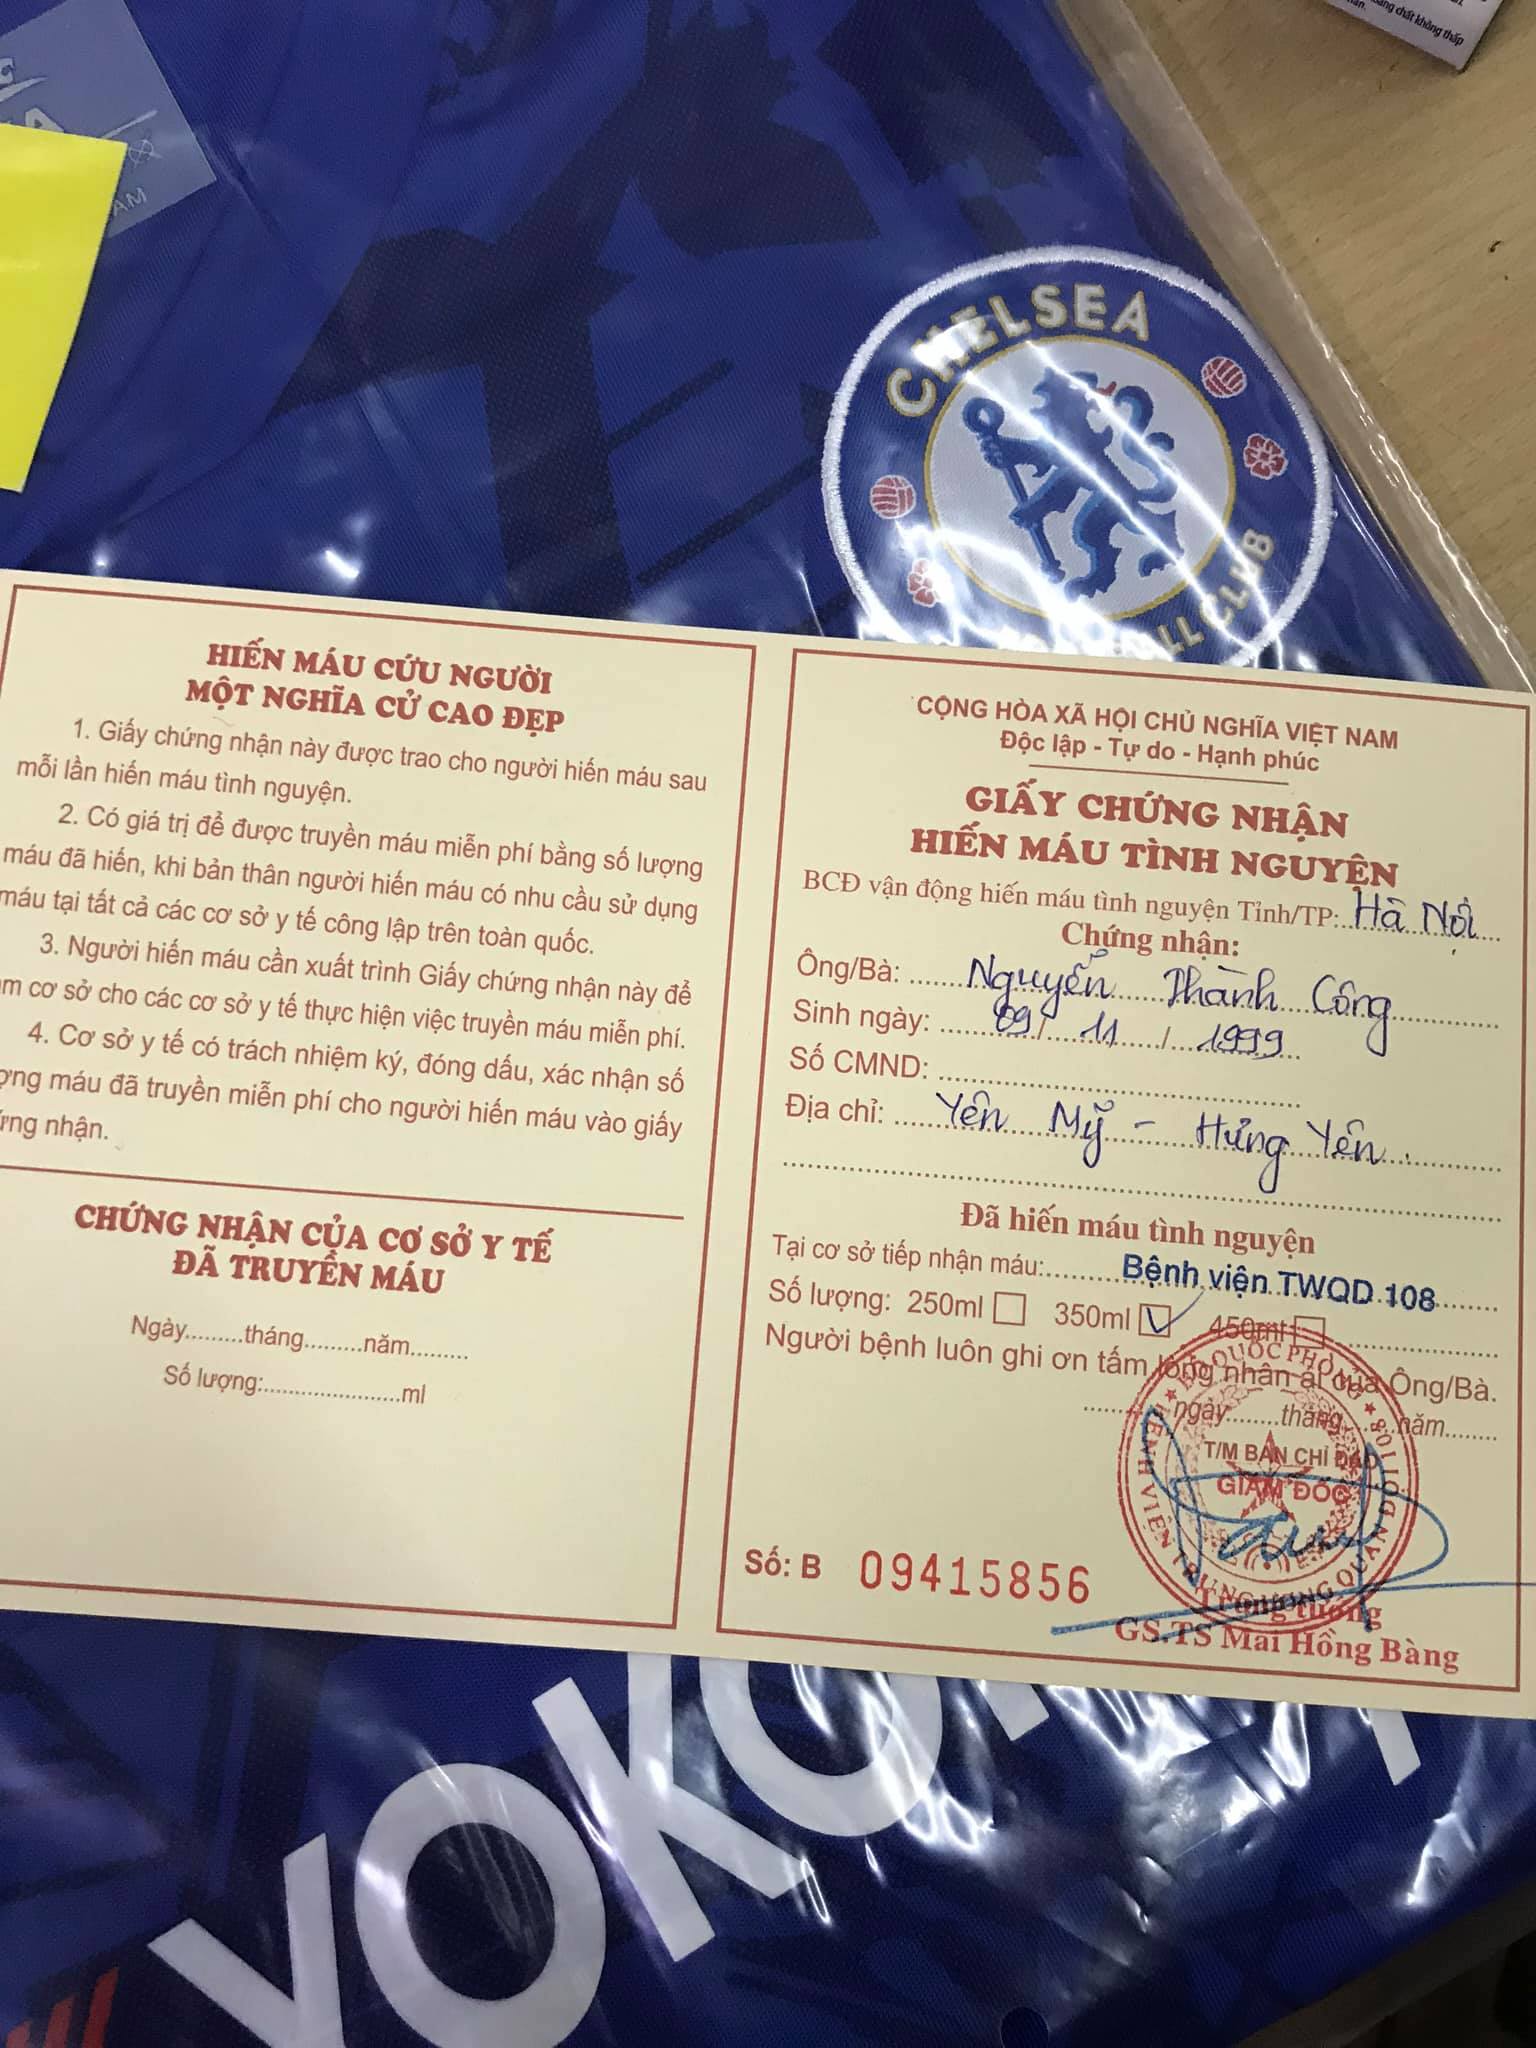 CHELSEA
LL CLUB
AM
HIẾN MÁU CỨU NGƯỜI
MỘT NGHĨA CỬ CAO ĐẸP
1. Giấy chứng nhận này được trao cho người hiến máu sau
mỗi lần hiến máu tình nguyện.
2. Có giá trị để được truyền máu miễn phí bằng số lượng
máu đã hiến, khi bản thân người hiến máu có nhu cầu sử dụng
máu tại tất cả các cơ sở y tế công lập trên toàn quốc.
3. Người hiến máu cần xuất trình Giấy chứng nhận này để
m cơ sở cho các cơ sở y tế thực hiện việc truyền máu miễn phí.
4. Cơ sở y tế có trách nhiệm ký, đóng dấu, xác nhận số
ợng máu đã truyền miễn phí cho người hiến máu vào giấy
ứng nhận.
CHỨNG NHẬN CỦA CƠ SỞ Y TẾ
ĐÃ TRUYỀN MÁU
Ngày.........tháng.........năm.........
Số lượng:........................ml
CỘNG HÒA XÃ HỘI CHỦ NGHĨA VIỆT NAM
Độc lập - Tự do - Hạnh phúc
GIẤY CHỨNG NHẬN
HIẾN MÁU TÌNH NGUYỆN
BCĐ vận động hiến máu tình nguyện Tỉnh/TP: Hà Nội
Chứng nhận:
Ông/Bà: Nguyễn Thành Công
Sinh ngày: 09 / 11 / 1999
Số CMND:
Địa chỉ: Yên Mỹ - Hưng Yên.
Đã hiến máu tình nguyện
Tại cơ sở tiếp nhận máu: Bệnh viện TWQD 108
Số lượng: 250ml 350ml 450ml
Người bệnh luôn ghi ơn tấm lòng nhân ái của Ông/Bà.
ngày........tháng........năm........
T/M BAN CHỈ ĐẠO
GIÁM ĐỐC
BỘ QUỐC PHÒNG
BỆNH VIỆN TRUNG ƯƠNG QUÂN ĐỘI 108
Số: B 09415856
Trung tướng
GS.TS Mai Hồng Bàng
YOKO